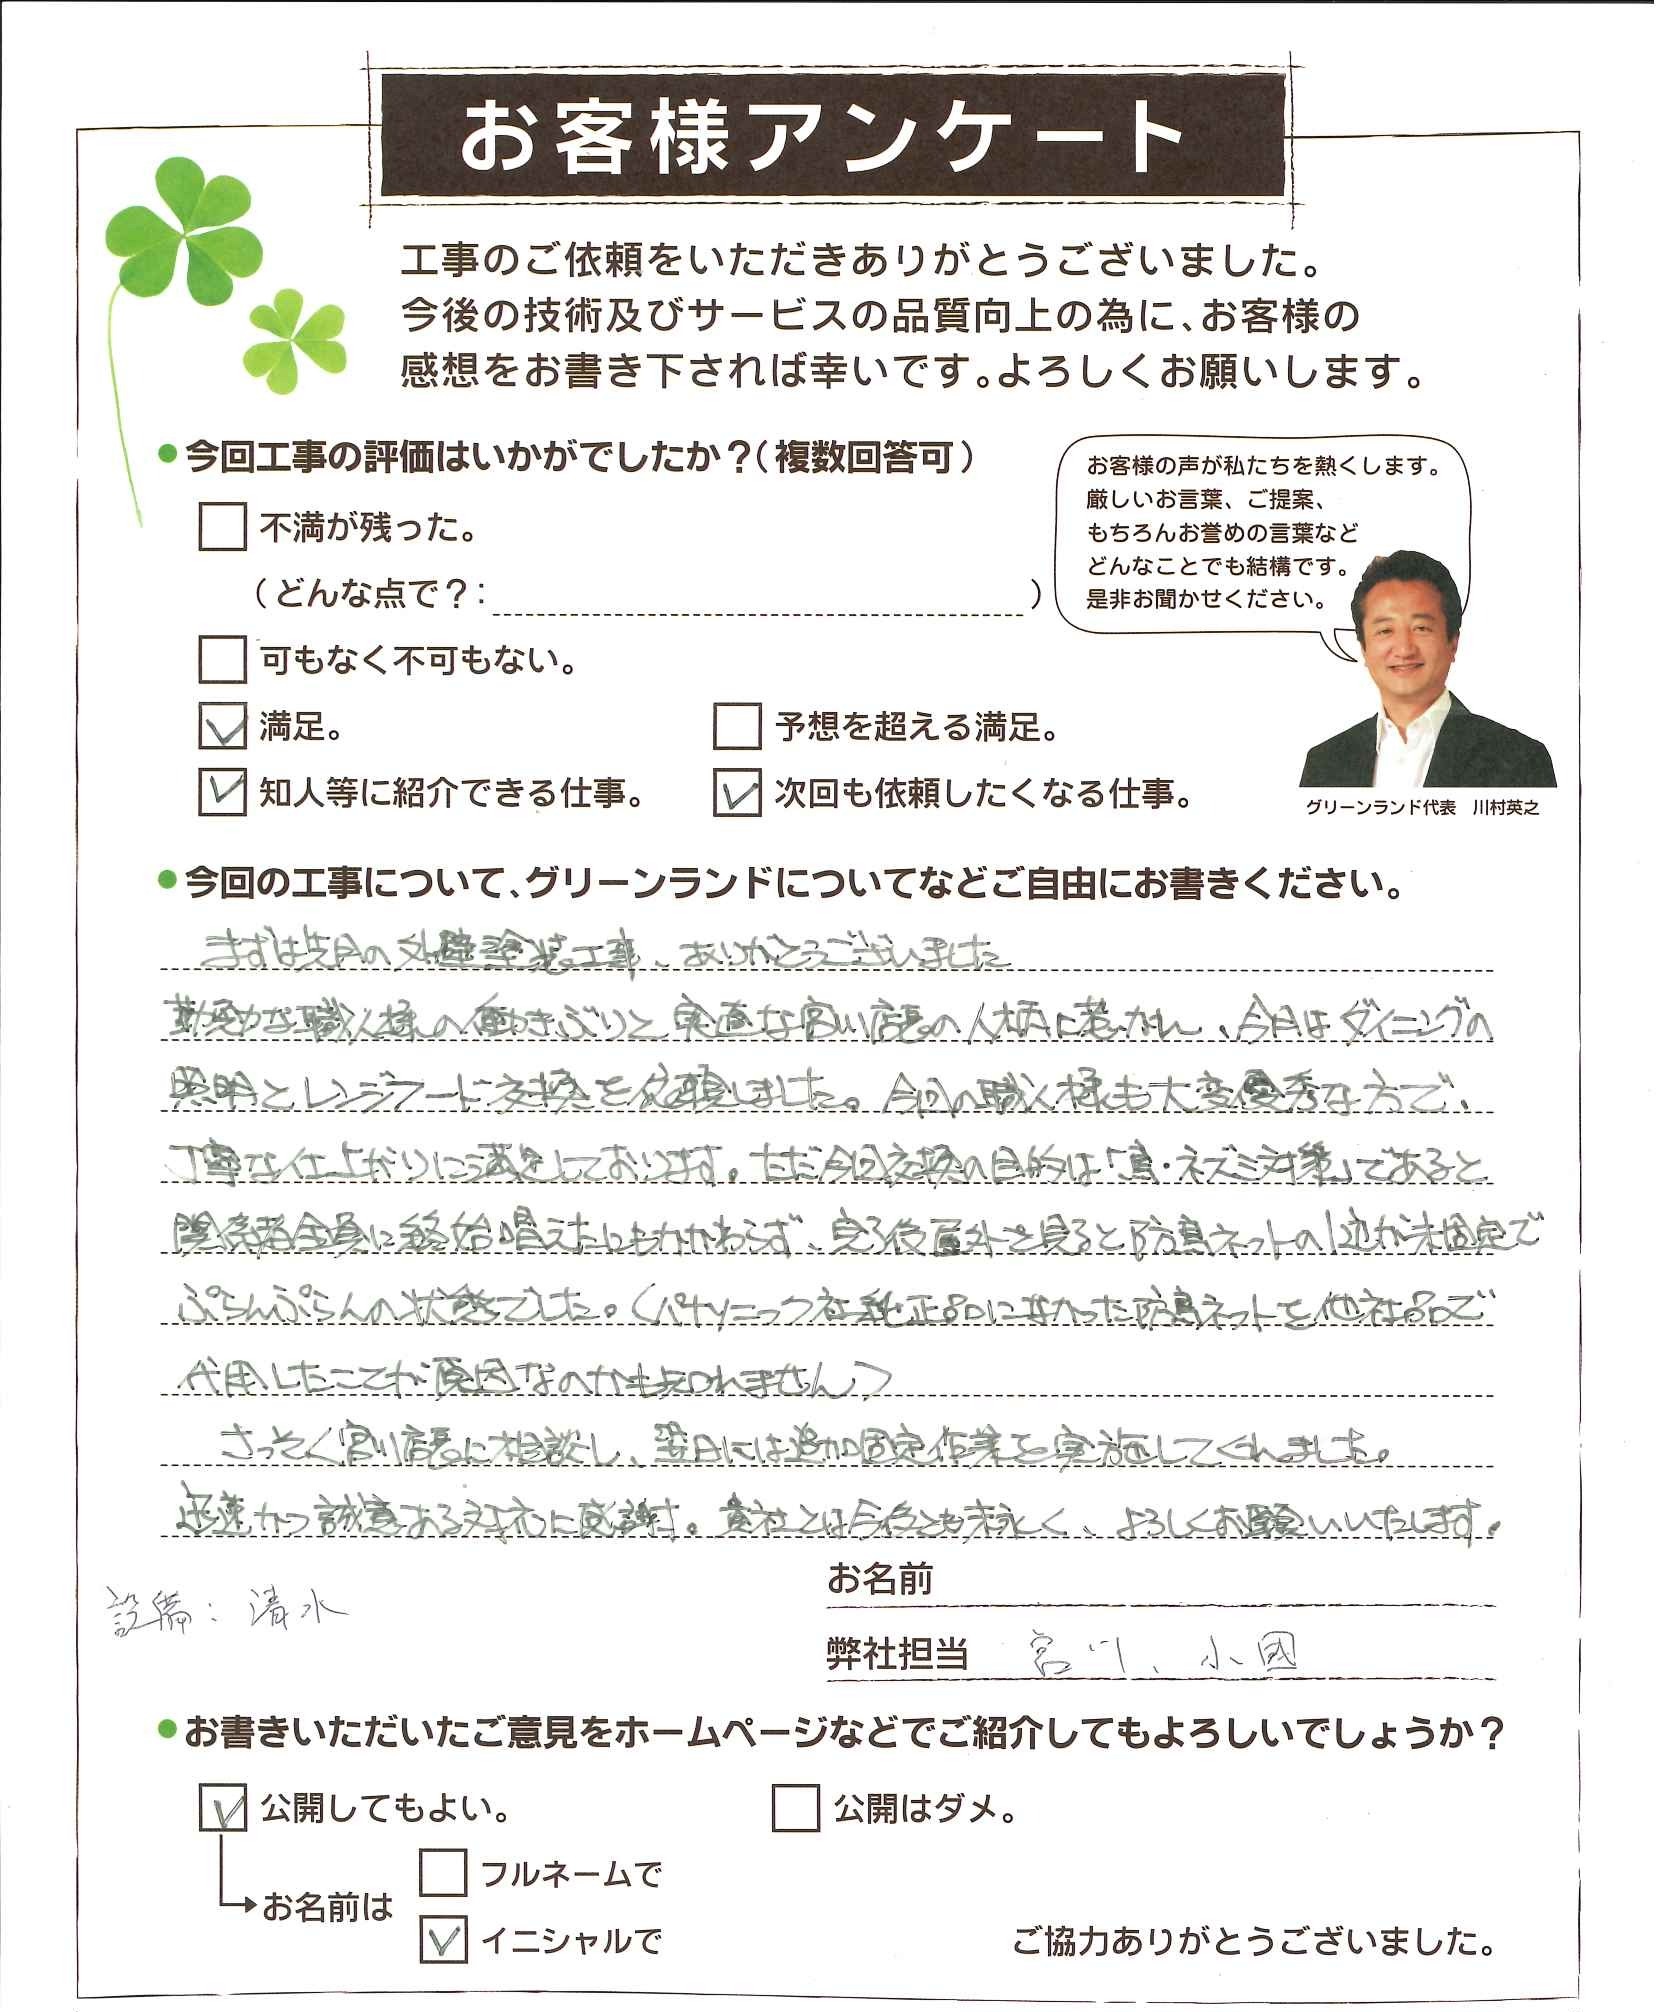 お客様アンケート
工事のご依頼をいただきありがとうございました。
今後の技術及びサービスの品質向上の為に、お客様の
感想をお書き下されば幸いです。よろしくお願いします。
●今回工事の評価はいかがでしたか？(複数回答可)
不満が残った。
(どんな点で？: )
可もなく不可もない。
満足。
予想を超える満足。
知人等に紹介できる仕事。
次回も依頼したくなる仕事。
お客様の声が私たちを熱くします。
厳しいお言葉、ご提案、
もちろんお誉めの言葉など
どんなことでも結構です。
是非お聞かせください。
グリーンランド代表 川村英之
●今回の工事について、グリーンランドについてなどご自由にお書きください。
まずは先月の外壁塗装工事、ありがとうございました
勤勉な職人様の働きぶりと実直な宮川店長の人柄に惹かれ、今月はダイニングの
照明とレンジフード交換を依頼しました。今回の職人様も大変優秀な方で、
丁寧な仕上がりに満足しております。ただ今回交換の目的は「鳥・ネズミ対策」であると
関係者全員に終始唱えたにもかかわらず、完了後屋外を見ると防鳥ネットの1辺が未固定で
ぷらんぷらんの状態でした。(パナソニック社純正品になかった防鳥ネットを他社品で
代用したことが原因なのかも知れません)
さっそく宮川店長に相談し、翌日には追加固定作業を実施してくれました。
迅速かつ誠意ある対応に感謝す。貴社とは今後とも末永く、よろしくお願いいたします。
お名前
設備: 清水
弊社担当 宮川、小國
●お書きいただいたご意見をホームページなどでご紹介してもよろしいでしょうか？
公開してもよい。
公開はダメ。
お名前は
フルネームで
イニシャルで
ご協力ありがとうございました。